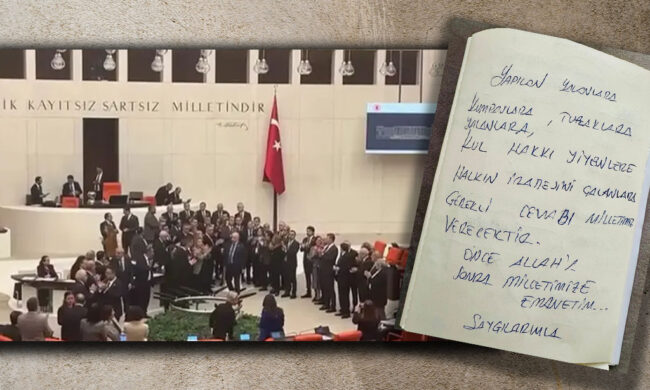 İK KAYITSIZ ŞARTSIZ MİLLETİNDİR
YAPILAN YALANLARA
KUMPASLARA, TUZAKLARA
YALANLARA,
KUL HAKKI YİYENLERE
HALKIN İRADESİNİ ÇALANLARA
GEREKLİ CEVABI MİLLETİMİZ
VERECEKTİR.
ÖNCE ALLAH'A
SONRA MİLLETİMİZE
EMANETİM..
SAYGILARIMLA